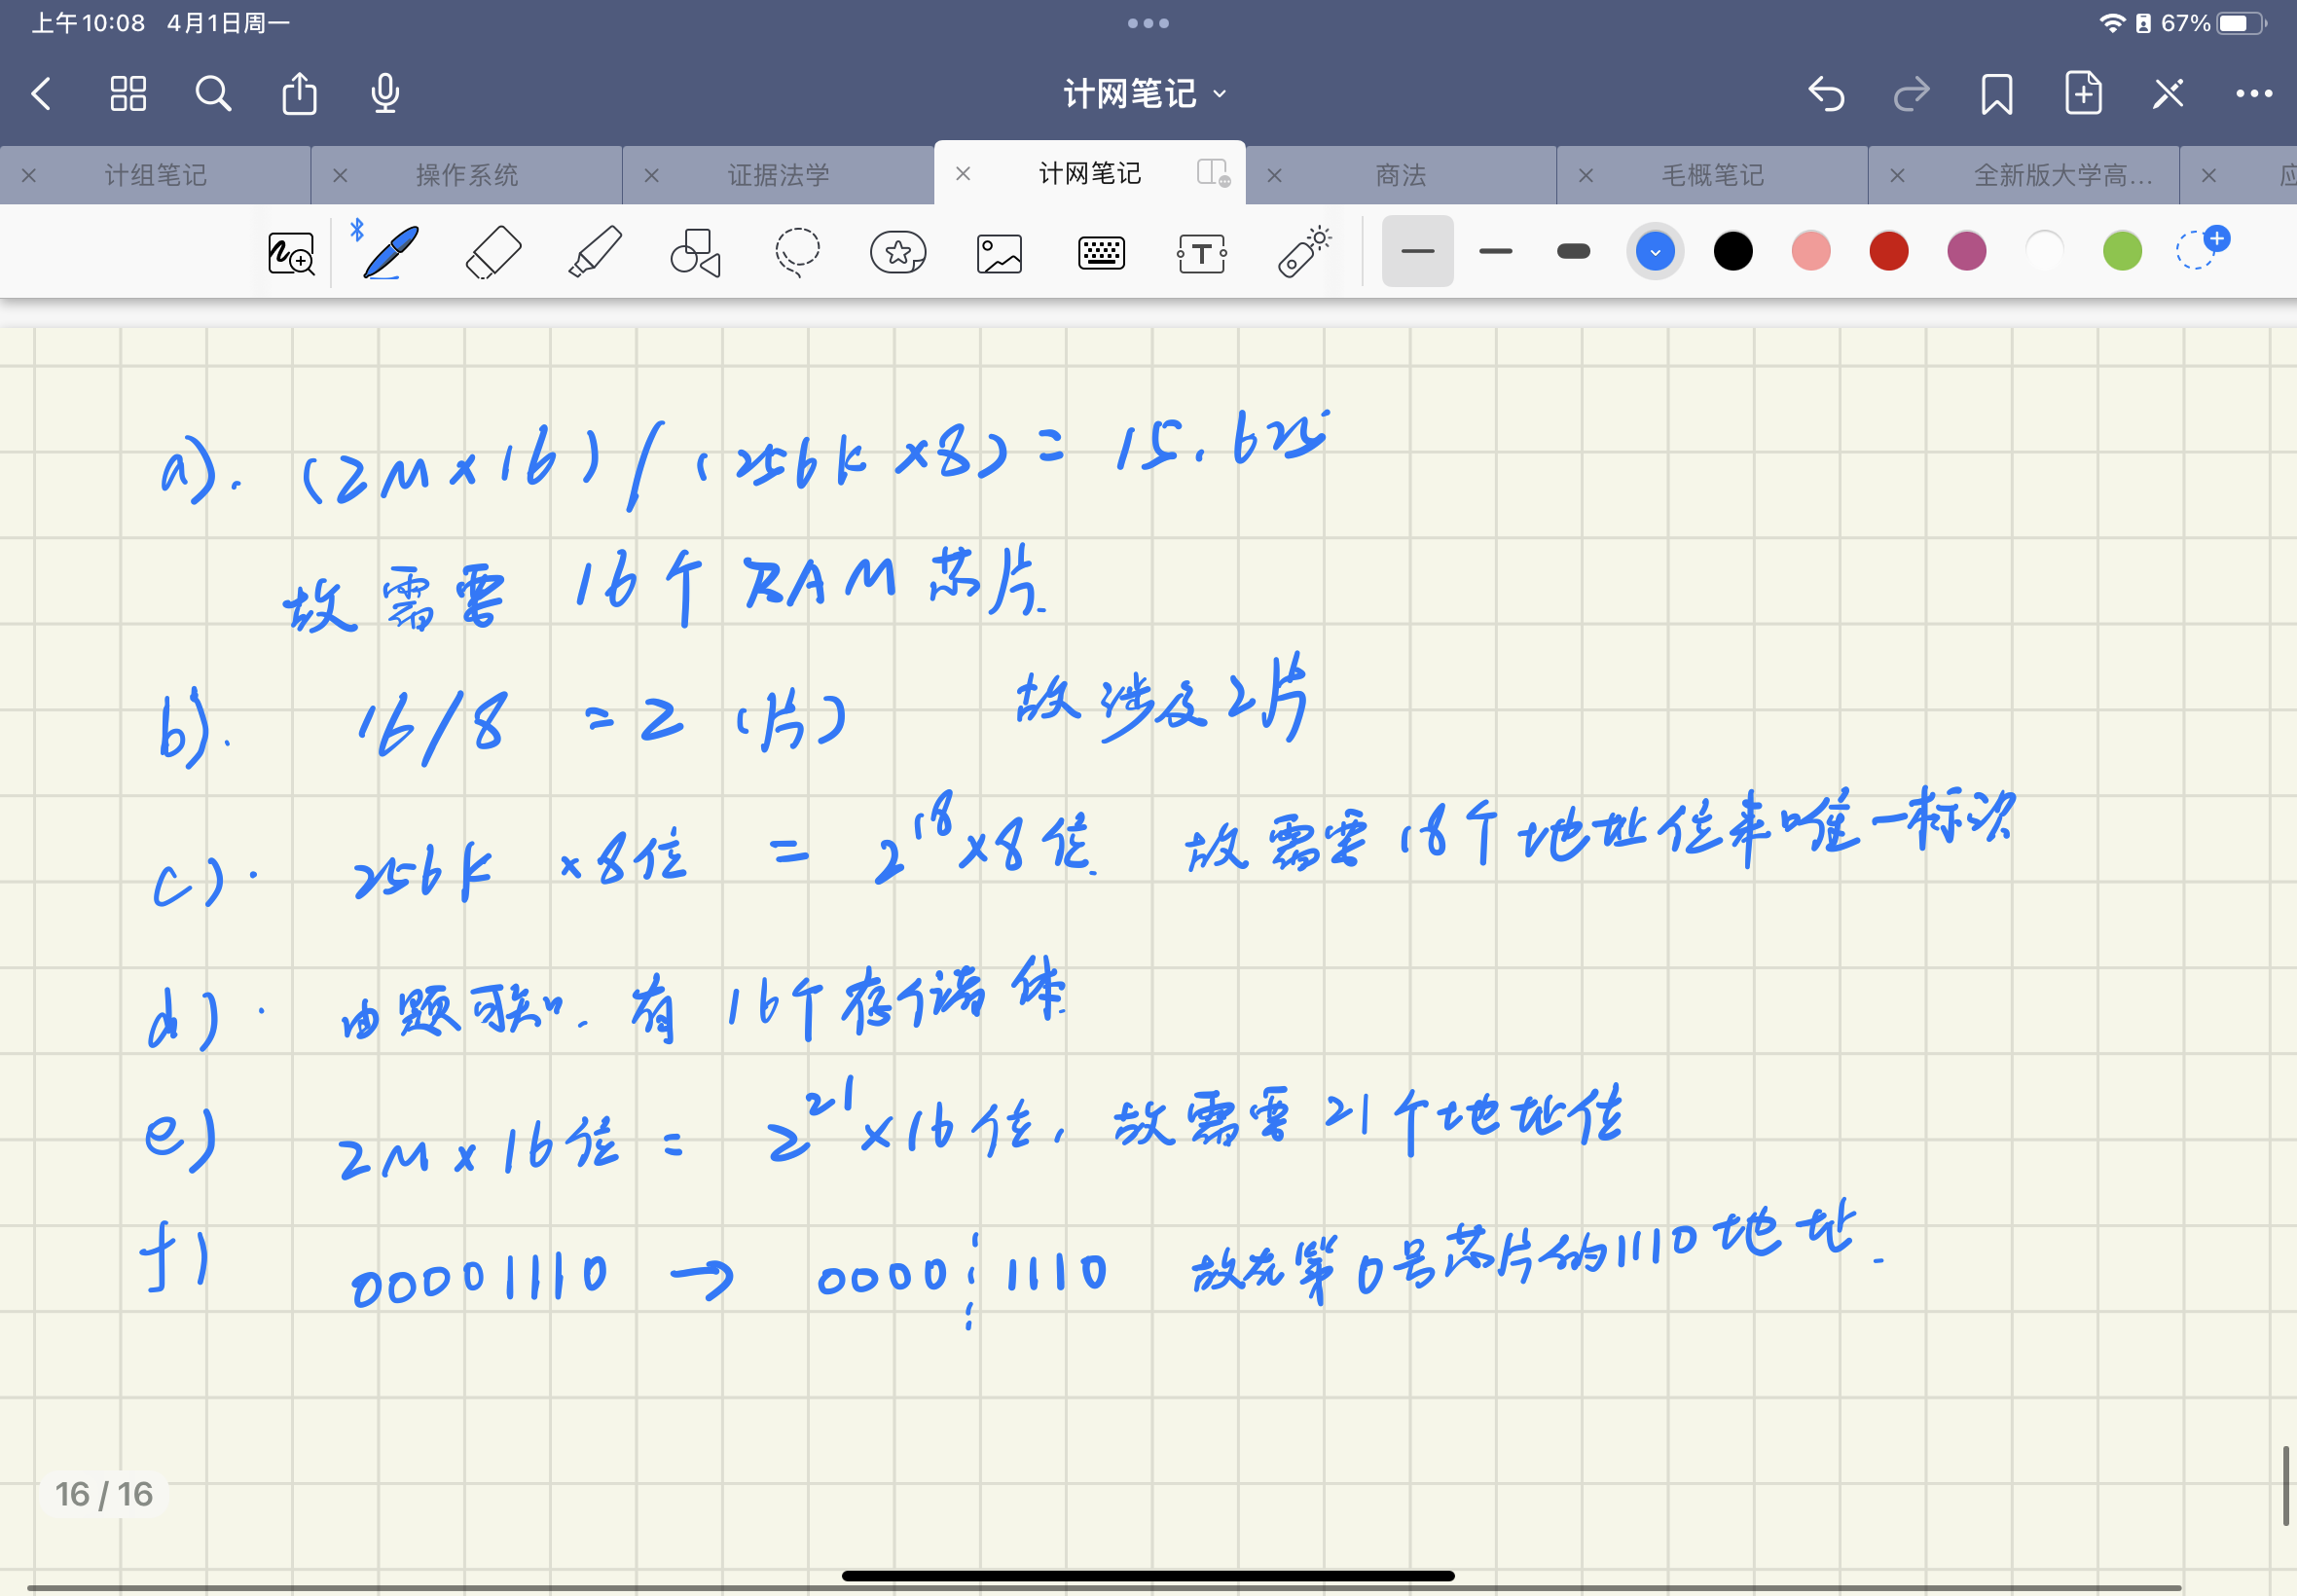 上午10:08 4月1日周一
67%
计网笔记
计组笔记 操作系统 证据法学 计网笔记 商法 毛概笔记 全新版大学高... 应
a). (2M×16)/(256k×8)=15.625
故需要 16个RAM芯片.
b). 16/8 =2 (片) 故涉及2片
c). 256k ×8位 = 2^18×8位. 故需要18个地址位来唯一标识
d). 由题可知. 有16个存储体.
e) 2M×16位 = 2^21×16位. 故需要21个地址位
f) 00001110 → 0000 1110 故在第0号芯片的1110地址.
16 / 16